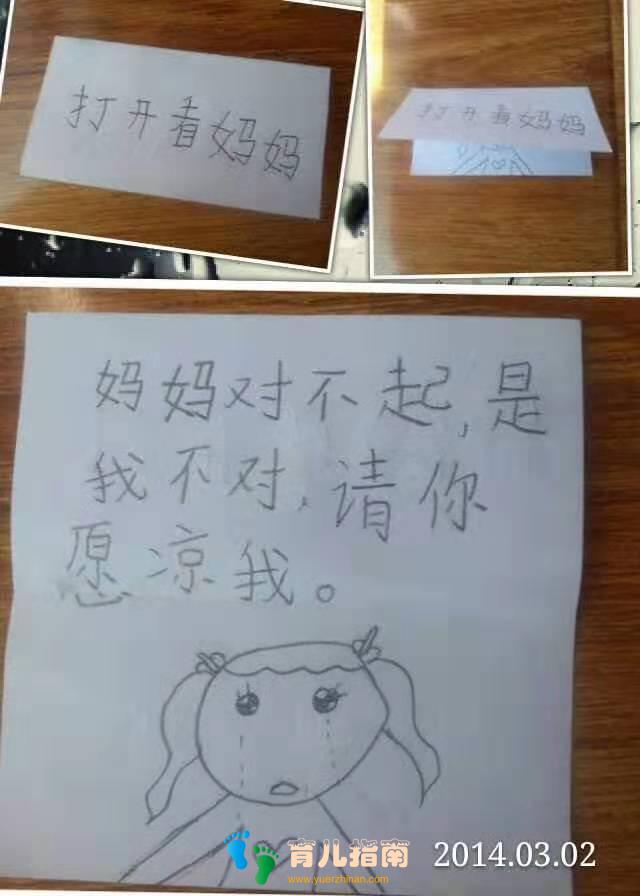 打开看妈妈
打开看妈妈
妈妈对不起,是
我不对,请你
愿凉我。
育儿指南
www.yuerzhinan.com
2014.03.02